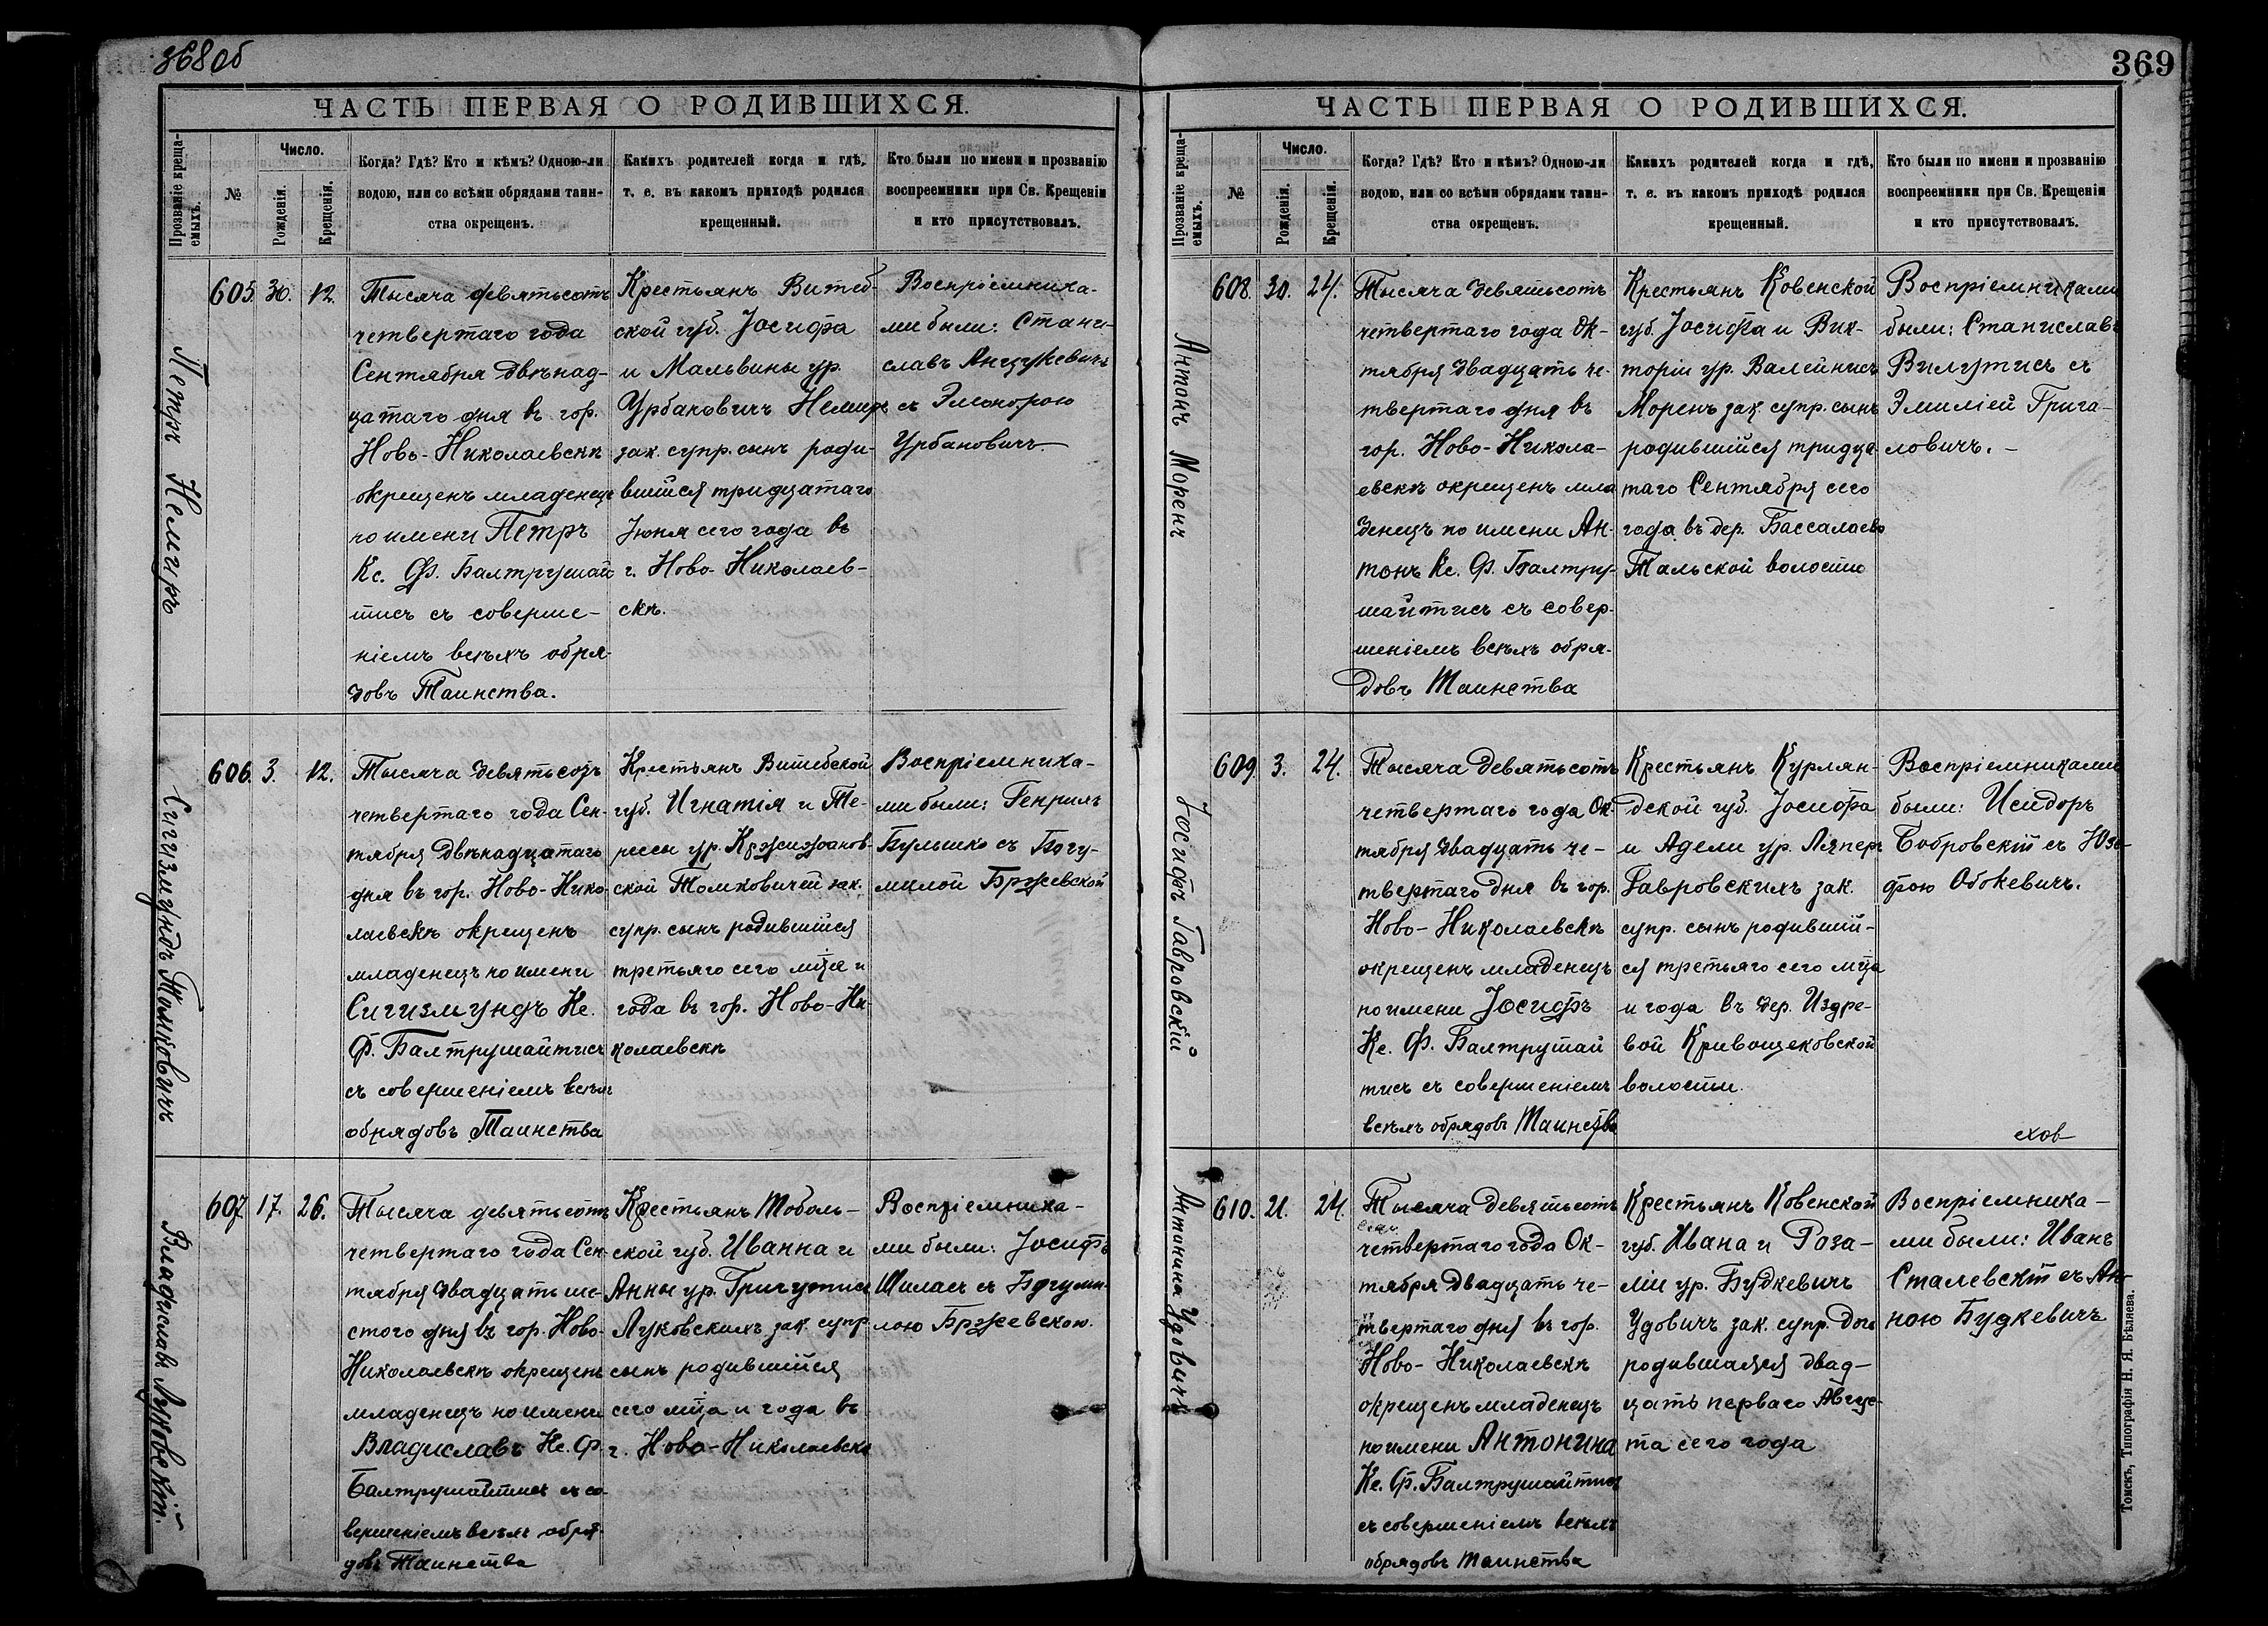 368об
ЧАСТЬ ПЕРВАЯ О РОДИВШИХСЯ.
Прозваніе крещаемыхъ.
№
Число.
Рожденія.
Крещенія.
Когда? Гдѣ? Кто и кѣмъ? Одною-ли
водою, или со всѣми обрядами таин-
ства окрещенъ.
Какихъ родителей когда и гдѣ,
т. е. въ какомъ приходѣ родился
крещенный.
Кто были по имени и прозванію
воспреемники при Св. Крещеніи
и кто присутствовалъ.
Петръ Немиръ
605. 30. 12.
Тысяча девятьсотъ
четвертаго года
Сентября двѣнад-
цатаго дня въ гор.
Ново-Николаевскѣ
окрещенъ младенецъ
по имени Петръ
Кс. Ф. Балтрушай
тисъ съ соверше-
ніемъ всѣхъ обря-
довъ Таинства.
Крестьянъ Витеб-
ской губ. Іосифа
и Мальвины ур.
Урбановичъ Немиръ
зак. супр. сынъ роди-
вшійся тридцатаго
Іюня сего года въ
г. Ново-Николаев-
скѣ.
Воспріемника-
ми были: Стани-
славъ Анцукевичъ
съ Элеонорою
Урбановичъ
Сигизмундъ Томковичъ
606. 3. 12.
Тысяча девятьсотъ
четвертаго года Сен-
тября двѣнадцатаго
дня въ гор. Ново-Нико-
лаевскѣ окрещенъ
младенецъ по имени
Сигизмундъ Кс.
Ф. Балтрушайтисъ
съ совершеніемъ всѣхъ
обрядовъ Таинства
Крестьянъ Витебской
губ. Игнатія и Те-
ресы ур. Кржижанов-
ской Томковичей зак.
супр. сынъ родившійся
третьяго сего мца и
года въ гор. Ново-Ни-
колаевскѣ
Воспріемника-
ми были: Генрихъ
Булышко съ Богу-
милой Бржевской
Владиславъ Луковскій.
607. 17. 26.
Тысяча девятьсотъ
четвертаго года Сен-
тября двадцать ше-
стого дня въ гор. Ново-
Николаевскѣ окрещенъ
младенецъ по имени
Владиславъ Кс. Ф.
Балтрушайтисъ съ со-
вершеніемъ всѣхъ обря-
довъ Таинства
Крестьянъ Тоболь-
ской губ. Иванна и
Анны ур. Григутисъ
Луковскихъ зак. супр.
сынъ родившійся
сего мца и года въ
г. Ново-Николаевскѣ
Воспріемника-
ми были: Іосифъ
Шилассъ съ Богуми-
лою Бржевскою.
369
ЧАСТЬ ПЕРВАЯ О РОДИВШИХСЯ.
Прозваніе крещаемыхъ.
№
Число.
Рожденія.
Крещенія.
Когда? Гдѣ? Кто и кѣмъ? Одною-ли
водою, или со всѣми обрядами таин-
ства окрещенъ.
Какихъ родителей когда и гдѣ,
т. е. въ какомъ приходѣ родился
крещенный.
Кто были по имени и прозванію
воспреемники при Св. Крещеніи
и кто присутствовалъ.
Антонъ Моренъ
608. 30. 24.
Тысяча девятьсотъ
четвертаго года Ок-
тября двадцать че-
твертаго дня въ
гор. Ново-Никола-
евскѣ окрещенъ мла
денецъ по имени Ан-
тонъ Кс. Ф. Балтру-
шайтисъ съ совер-
шеніемъ всѣхъ обря-
довъ Таинства
Крестьянъ Ковенской
губ. Іосифа и Вик-
торіи ур. Валейнисъ
Моренъ зак. супр. сынъ
родившійся тридца
таго Сентября сего
года въ дер. Бассалаево
Тальской волости
Воспріемниками
были: Станиславъ
Вилутисъ съ
Эмиліей Грига-
ловичъ.-
Іосифъ Гавровскій
609. 3. 24.
Тысяча девятьсотъ
четвертаго года Ок-
тября двадцать че-
твертаго дня въ гор.
Ново-Николаевскѣ
окрещенъ младенецъ
по имени Іосифъ
Кс. Ф. Балтрушай
тисъ съ совершеніемъ
всѣхъ обрядовъ Таинства
Крестьянъ Курлян-
дской губ. Іосифа
и Адели ур. Ляперъ
Гавровскихъ зак.
супр. сынъ родившій-
ся третьяго сего мца
и года въ дер. Издре-
вой Кривощековской
волости.
Воспріемниками
были: Исидоръ
Бобровскій съ Юзе-
фою Обокевичъ.
Антонина Удовичъ
610. 21. 24.
Тысяча девятьсотъ
четвертаго года Ок-
тября двадцать че-
твертаго дня въ гор.
Ново-Николаевскѣ
окрещенъ младенецъ
по имени Антонина
Кс. Ф. Балтрушайтисъ
съ совершеніемъ всѣхъ
обрядовъ таинства
Крестьянъ Ковенской
губ. Ивана и Роза-
ліи ур. Будкевичъ
Удовичъ зак. супр. дочь
родившаяся двад-
цать перваго Авгус-
та сего года
Воспріемника-
ми были: Иванъ
Сталевскій съ Ан-
ною Будкевичъ
Томскъ, Типографія Н. Я. Бѣляева.